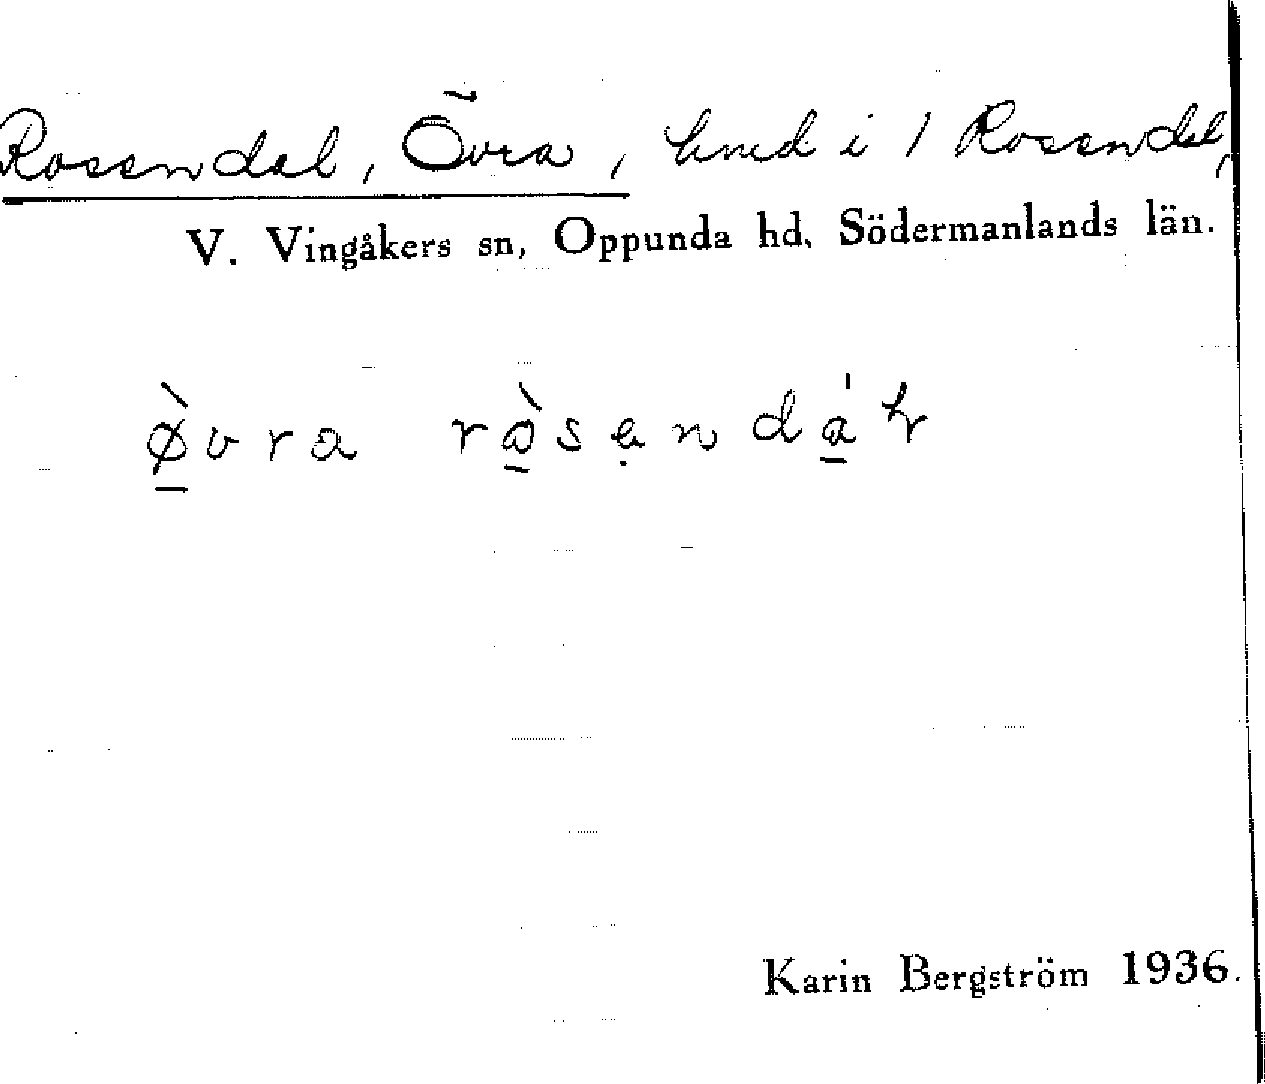 Rosendal, Övra, hmd i 1 Rosendal,
V. Vingåkers sn, Oppunda hd, Södermanlands län.
ø̀vra
Karin Bergström 1936.